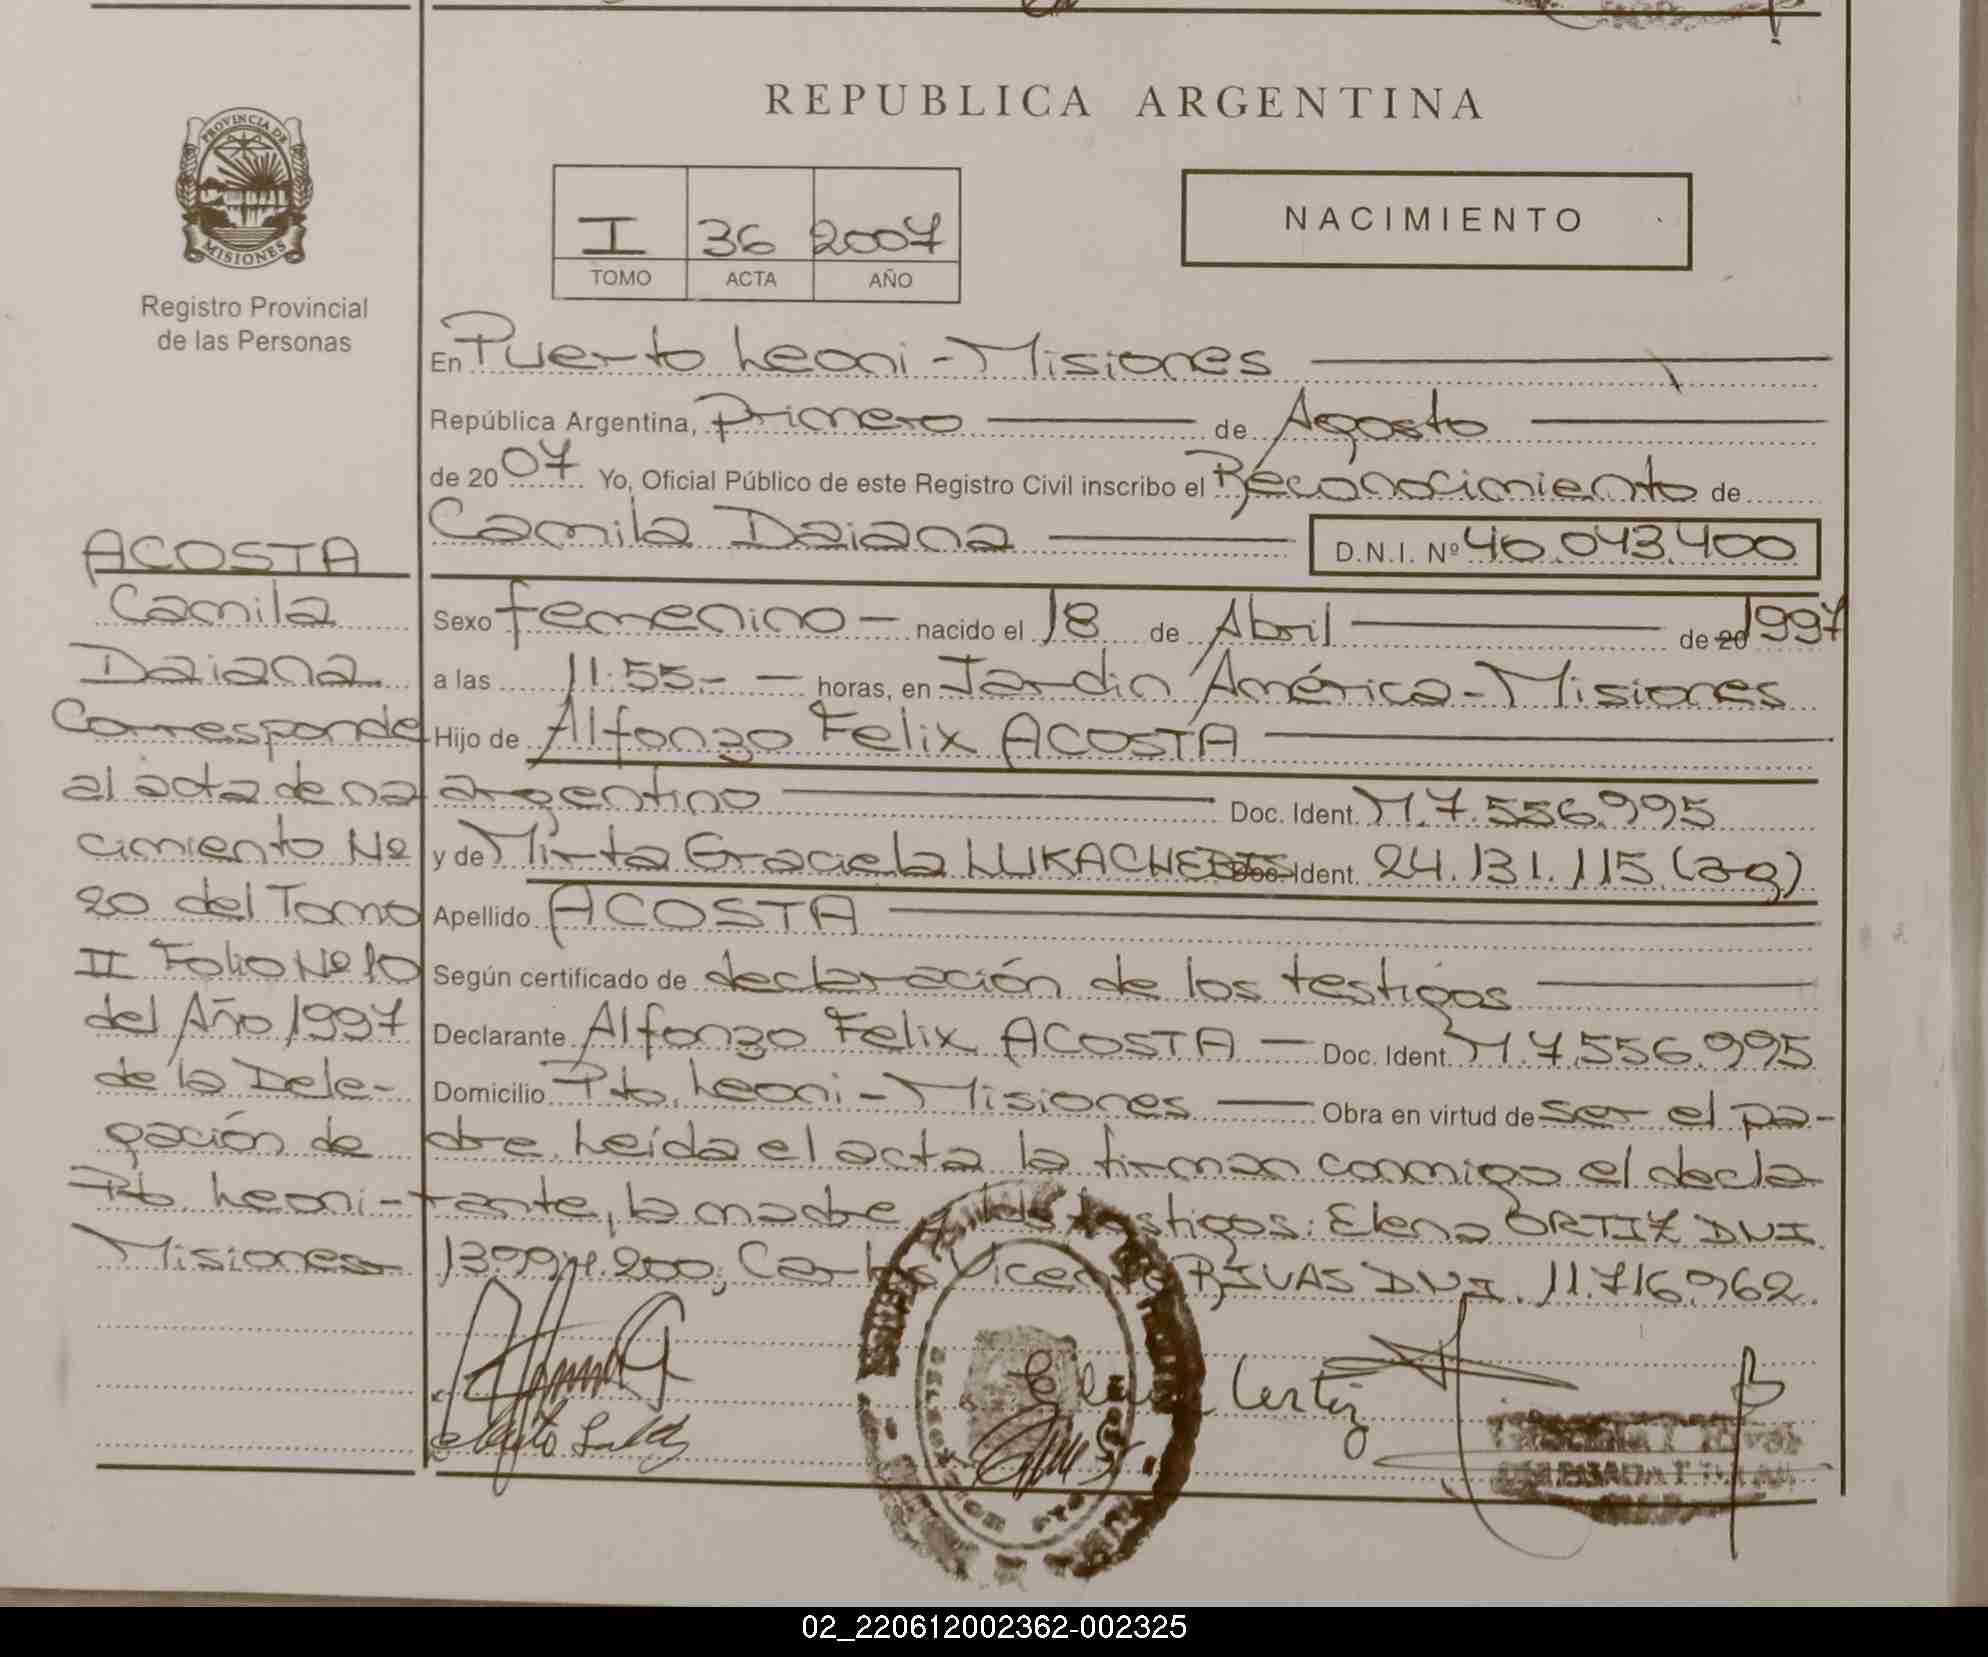 REPUBLICA ARGENTINA
PROVINCIA DE
MISIONES
Registro Provincial
de las Personas
I 36 2007
TOMO ACTA AÑO
NACIMIENTO
En Puerto Leoni - Misiones
República Argentina, Primero de Agosto
de 2007 Yo, Oficial Público de este Registro Civil inscribo el Reconocimiento de
Camila Daiana D.N.I. Nº 40.043.400
Sexo femenino - nacido el 18 de Abril de 20 1997
a las 11:55.- - horas, en Jardin América - Misiones
Hijo de Alfonzo Felix ACOSTA
argentino Doc. Ident. M.7.556.995
y de Mirta Graciela Doc. Ident. 24.131.115 (ag)
Apellido ACOSTA
Según certificado de declaración de los testigos
Declarante Alfonzo Felix ACOSTA - Doc. Ident. M.7.556.995
Domicilio Pto. Leoni - Misiones - Obra en virtud de ser el pa-
dre. Leída el acta la firman conmigo el decla
rante, la madre y los testigos: Elena ORTIZ DNI
Carlos Vicente RIVAS D.N.I. 11.716.962.
ACOSTA
Camila
Daiana
Corresponde
al acta de na
cimiento Nº
20 del Tomo
II Folio Nº 10
del Año 1997
de la Dele-
gación de
Pto. Leoni -
Misiones
02_220612002362-002325